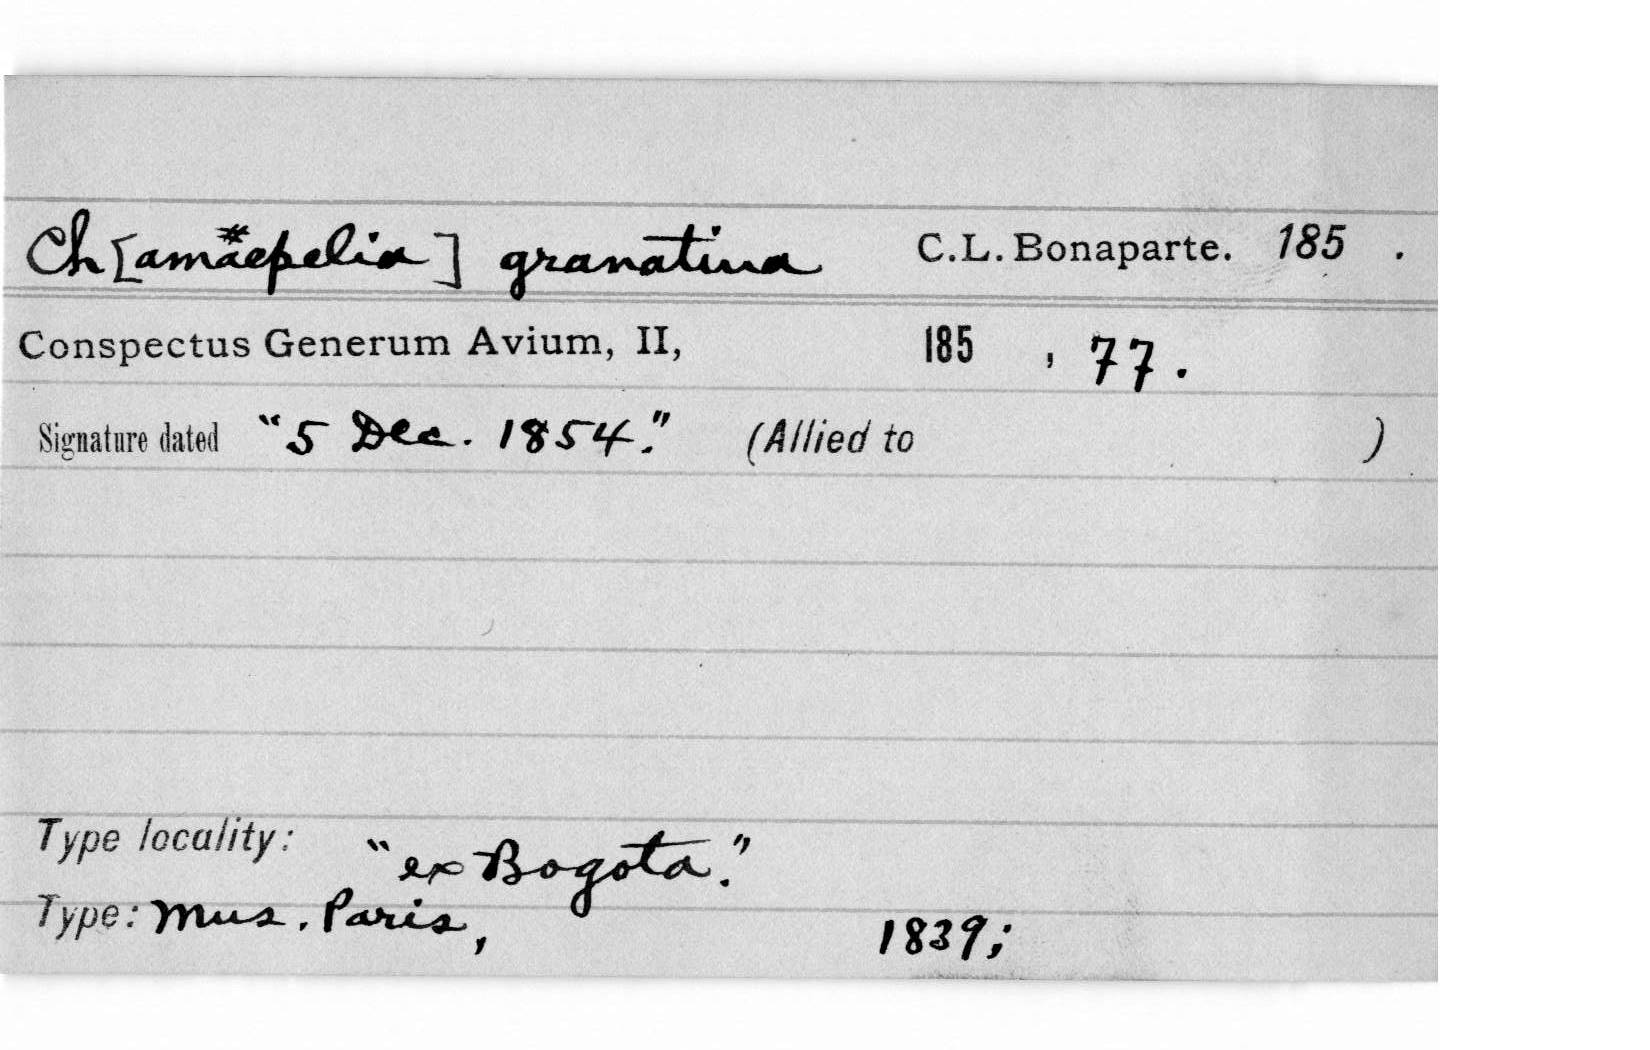 Ch[amaepelia] granatina C.L. Bonaparte. 185 .
Conspectus Generum Avium, II, 185 , 77.
Signature dated "5 Dec. 1854." (Allied to )
Type locality: "ex Bogota."
Type: Mus. Paris, 1839;